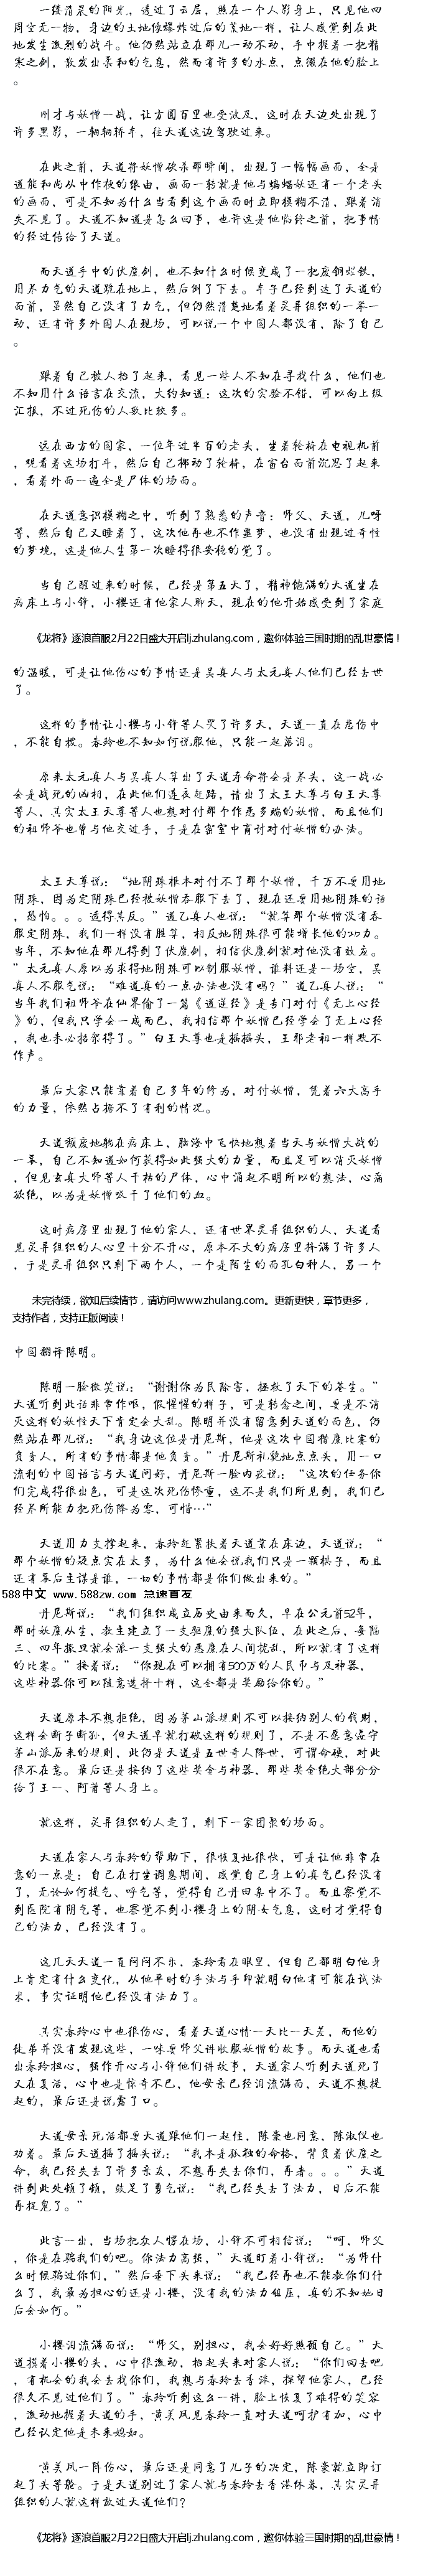 一缕清晨的阳光，透过了云层，照在一个人影身上，只见他四
周空无一物，身边的土地像爆炸过后的荒地一样，让人感觉到在此
地发生激烈的战斗。他仍然站立在那儿一动不动，手中握着一把精
寒之剑，散发出柔和的气息，然而有许多的水点，点缀在他的脸上
。
刚才与妖僧一战，让方圆百里也受波及，这时在天边处出现了
许多黑影，一辆辆轿车，往天道这边驾驶过来。
在此之前，天道将妖僧砍杀那瞬间，出现了一幅幅画面，全是
道能和尚从中作梗的缘由，画面一转就是他与蝙蝠妖还有一个老头
的画面，可是不知为什么当看到这个画面时立即模糊不清，跟着消
失不见了。天道不知道是怎么回事，也许这是他临终之前，把事情
的经过传给了天道。
而天道手中的伏魔剑，也不知什么时候变成了一把废铜烂铁，
用尽力气的天道跪在地上，然后倒了下去。车子已经到达了天道的
面前，虽然自己没有了力气，但仍然清楚地看着灵异组织的一举一
动，还有许多外国人在现场，可以说一个中国人都没有，除了自己
。
跟着自己被人抬了起来，看见一些人不知在寻找什么，他们也
不知用什么语言在交流，大约知道：这次的实验不错，可以向上级
汇报，不过死伤的人数比较多。
远在西方的国家，一位年过半百的老头，坐着轮椅在电视机前
，观看着这场打斗，然后自己挪动了轮椅，在窗台面前沉思了起来
，看着外面一遍全是尸体的场面。
在天道意识模糊之中，听到了熟悉的声音：师父、天道，儿呀
等，然后自己又睡着了，这次他再也不作噩梦，也没有出现过奇怪
的梦境，这是他人生第一次睡得很安稳的觉了。
当自己醒过来的时候，已经是第五天了，精神饱满的天道坐在
病床上与小锋，小樱还有他家人聊天，现在的他开始感受到了家庭
《龙将》逐浪首服2月22日盛大开启lj.zhulang.com，邀你体验三国时期的乱世豪情！
的温暖，可是让他伤心的事情还是吴真人与太元真人他们已经去世
了。
这样的事情让小樱与小锋等人哭了许多天，天道一直在悲伤中
，不能自拔。春玲也不知如何说服他，只能一起落泪。
原来太元真人与吴真人算出了天道寿命将会是尽头，这一战必
会是战死的凶相，在此他们连夜赶路，请出了太王天尊与白王天尊
等人，其实太王天尊等人也想对付那个作恶多端的妖僧，而且他们
的祖师爷也曾与他交过手，于是在密室中商讨对付妖僧的办法。
太王天尊说：“地阴珠根本对付不了那个妖僧，千万不要用地
阴珠，因为定阴珠已经被妖僧吞服下去了，现在还要用地阴珠的话
，恐怕。。。适得其反。”道乙真人也说：“就算那个妖僧没有吞
服定阴珠，我们一样没有胜算，相反地阴珠很可能增长他的功力。
当年，不知他在那儿得到了伏魔剑，相信伏魔剑就对他没有效应。
”太元真人原以为求得地阴珠可以制服妖僧，谁料还是一场空，吴
真人不服气说：“难道真的一点办法也没有吗？”道乙真人说：“
当年我们祖师爷在仙界偷了一篇《道逆经》是专门对付《无上心经
》的，但我只学会一成而已，我相信那个妖僧已经学会了无上心经
，我也未必招架得了。”白王天尊也是摇摇头，王那老祖一样默不
作声。
最后大家只能靠着自己多年的修为，对付妖僧，凭着六大高手
的力量，依然占据不了有利的情况。
天道颓废地躺在病床上，脑海中飞快地想着当天与妖僧大战的
一幕，自己不知道如何获得如此强大的力量，而且足可以消灭妖僧
，但见玄真大师等人干枯的尸体，心中涌起不明所以的想法，心痛
欲绝，以为是妖僧吸干了他们的血。
这时病房里出现了他的家人，还有世界灵异组织的人，天道看
见灵异组织的人心里十分不开心，原本不大的病房里挤满了许多人
，于是灵异组织只剩下两个人，一个是陌生的面孔白种人，另一个
未完待续，欲知后续情节，请访问www.zhulang.com。更新更快，章节更多，
支持作者，支持正版阅读！
中国翻译陈明。
陈明一脸微笑说：“谢谢你为民除害，拯救了天下的苍生。”
天道听到此话非常作呕，假惺惺的样子，可是转念之间，要是不消
灭这样的妖怪天下肯定会大乱。陈明并没有留意到天道的面色，仍
然站在那儿说：“我身边这位是丹尼斯，他是这次中国猎魔比赛的
负责人，所有的事情都是他负责。”丹尼斯礼貌地点点头，用一口
流利的中国语言与天道问好，丹尼斯一脸内疚说：“这次的任务你
们完成得很出色，可是这次死伤惨重，这不是我们所见到，我们已
经尽所能力把死伤降为零，可惜…”
天道用力支撑起来，春玲赶紧扶着天道靠在床边，天道说：“
那个妖僧的疑点实在太多，为什么他会说我们只是一颗棋子，而且
还有幕后主谋是谁，一切的事情都是你们做出来的。”
588中文 www.588zw.com 急速首发
丹尼斯说：“我们组织成立历史由来而久，早在公元前52年，
那时妖魔从生，教主建立了一支驱魔的强大队伍，在此之后，每隔
三、四年撒旦就会派一支强大的恶魔在人间扰乱，所以就有了这样
的比赛。”接着说：“你现在可以拥有500万的人民币与及神器，
这些神器你可以随意选择十样，这全都是奖励给你的。”
天道原本不想拒绝，因为茅山派规则不可以接纳别人的钱财，
这样会断子断孙，但天道早就打破这样的规则了，不是不愿意遵守
茅山派历来的规则，此仍是天道是五世奇人降世，可谓命硬，对此
很不在意。最后还是接纳了这些奖金与神器，那些奖金绝大部分分
给了王一、阿蒲等人身上。
就这样，灵异组织的人走了，剩下一家团聚的场面。
天道在家人与春玲的帮助下，很恢复地很快，可是让他非常在
意的一点是：自己在打坐调息期间，感觉自己身上的真气已经没有
了，无论如何提气、呼气等，觉得自己丹田集中不了。而且察觉不
到医院有阴气等，也察觉不到小樱身上的阴女气息，这时才觉得自
己的法力，已经没有了。
这几天天道一直闷闷不乐，春玲看在眼里，但自己都明白他身
上肯定有什么变化，从他平时的手法与手印就明白他有可能在试法
术，事实证明他已经没有法力了。
其实春玲心中也很伤心，看着天道心情一天比一天差，而他的
徒弟并没有发现这些，一味要师父讲收服妖僧的故事。而天道也看
出春玲担心，强作开心与小锋他们讲故事，天道家人听到天道死了
又在复活，心中也是惊奇不已，他母亲已经泪流满面，天道不想提
起的，最后还是说露了口。
天道母亲死活都要天道跟他们一起住，陈豪也同意，陈淑仪也
劝着。最后天道摇了摇头说：“我本是孤独的命格，背负着伏魔之
命，我已经失去了许多亲友，不想再失去你们，再者。。。”天道
讲到此处顿了顿，鼓足了勇气说：“我已经失去了法力，日后不能
再捉鬼了。”
此言一出，当场把众人愣在场，小锋不可相信说：“呵，师父
，你是在骗我们的吧。你法力高强，”天道盯着小锋说：“为师什
么时候骗过你们，”然后垂下头来说：“我已经再也不能教你们什
么了，我最为担心的还是小樱，没有我的法力镇压，真的不知她日
后会如何。”
小樱泪流满面说：“师父，别担心，我会好好照顾自己。”天
道摸着小樱的头，心中很激动，抬起头来对家人说：“你们回去吧
，有机会的我会去找你们，我想与春玲去香港，探望他家人，已经
很久不见过他们了。”春玲听到这么一讲，脸上恢复了难得的笑容
，激动地握着天道的手，黄美凤见春玲一直对天道呵护有加，心中
已经认定他是未来媳妇。
黄美凤一阵伤心，最后还是同意了儿子的决定，陈豪就立即订
起了头等舱。于是天道别过了家人就与春玲去香港休养，其实灵异
组织的人就这样放过天道他们？
《龙将》逐浪首服2月22日盛大开启lj.zhulang.com，邀你体验三国时期的乱世豪情！